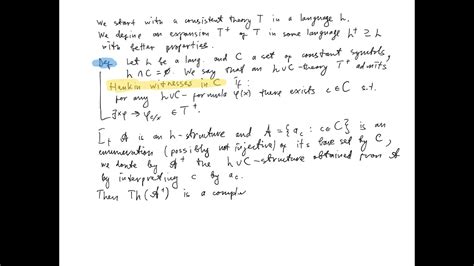 We start with a consistent theory T in a language L.
We define an expansion T⁺ of T in some language L⁺ ⊇ L
with better properties.
Def Let L be a lang. and C a set of constant symbols,
L ∩ C = ∅. We say that an L∪C-theory T⁺ admits
Henkin witnesses in C if :
for any L∪C-formula φ(x) there exists c ∈ C s.t.
∃xφ → φ_{c/x} ∈ T⁺.
If A is an L-structure and A = {a_c : c∈C} is an
enumeration (possibly not injective) of its base set by C,
we denote by A⁺ the L∪C-structure obtained from A
by interpreting c by a_c.
Then Th(A⁺) is a comple